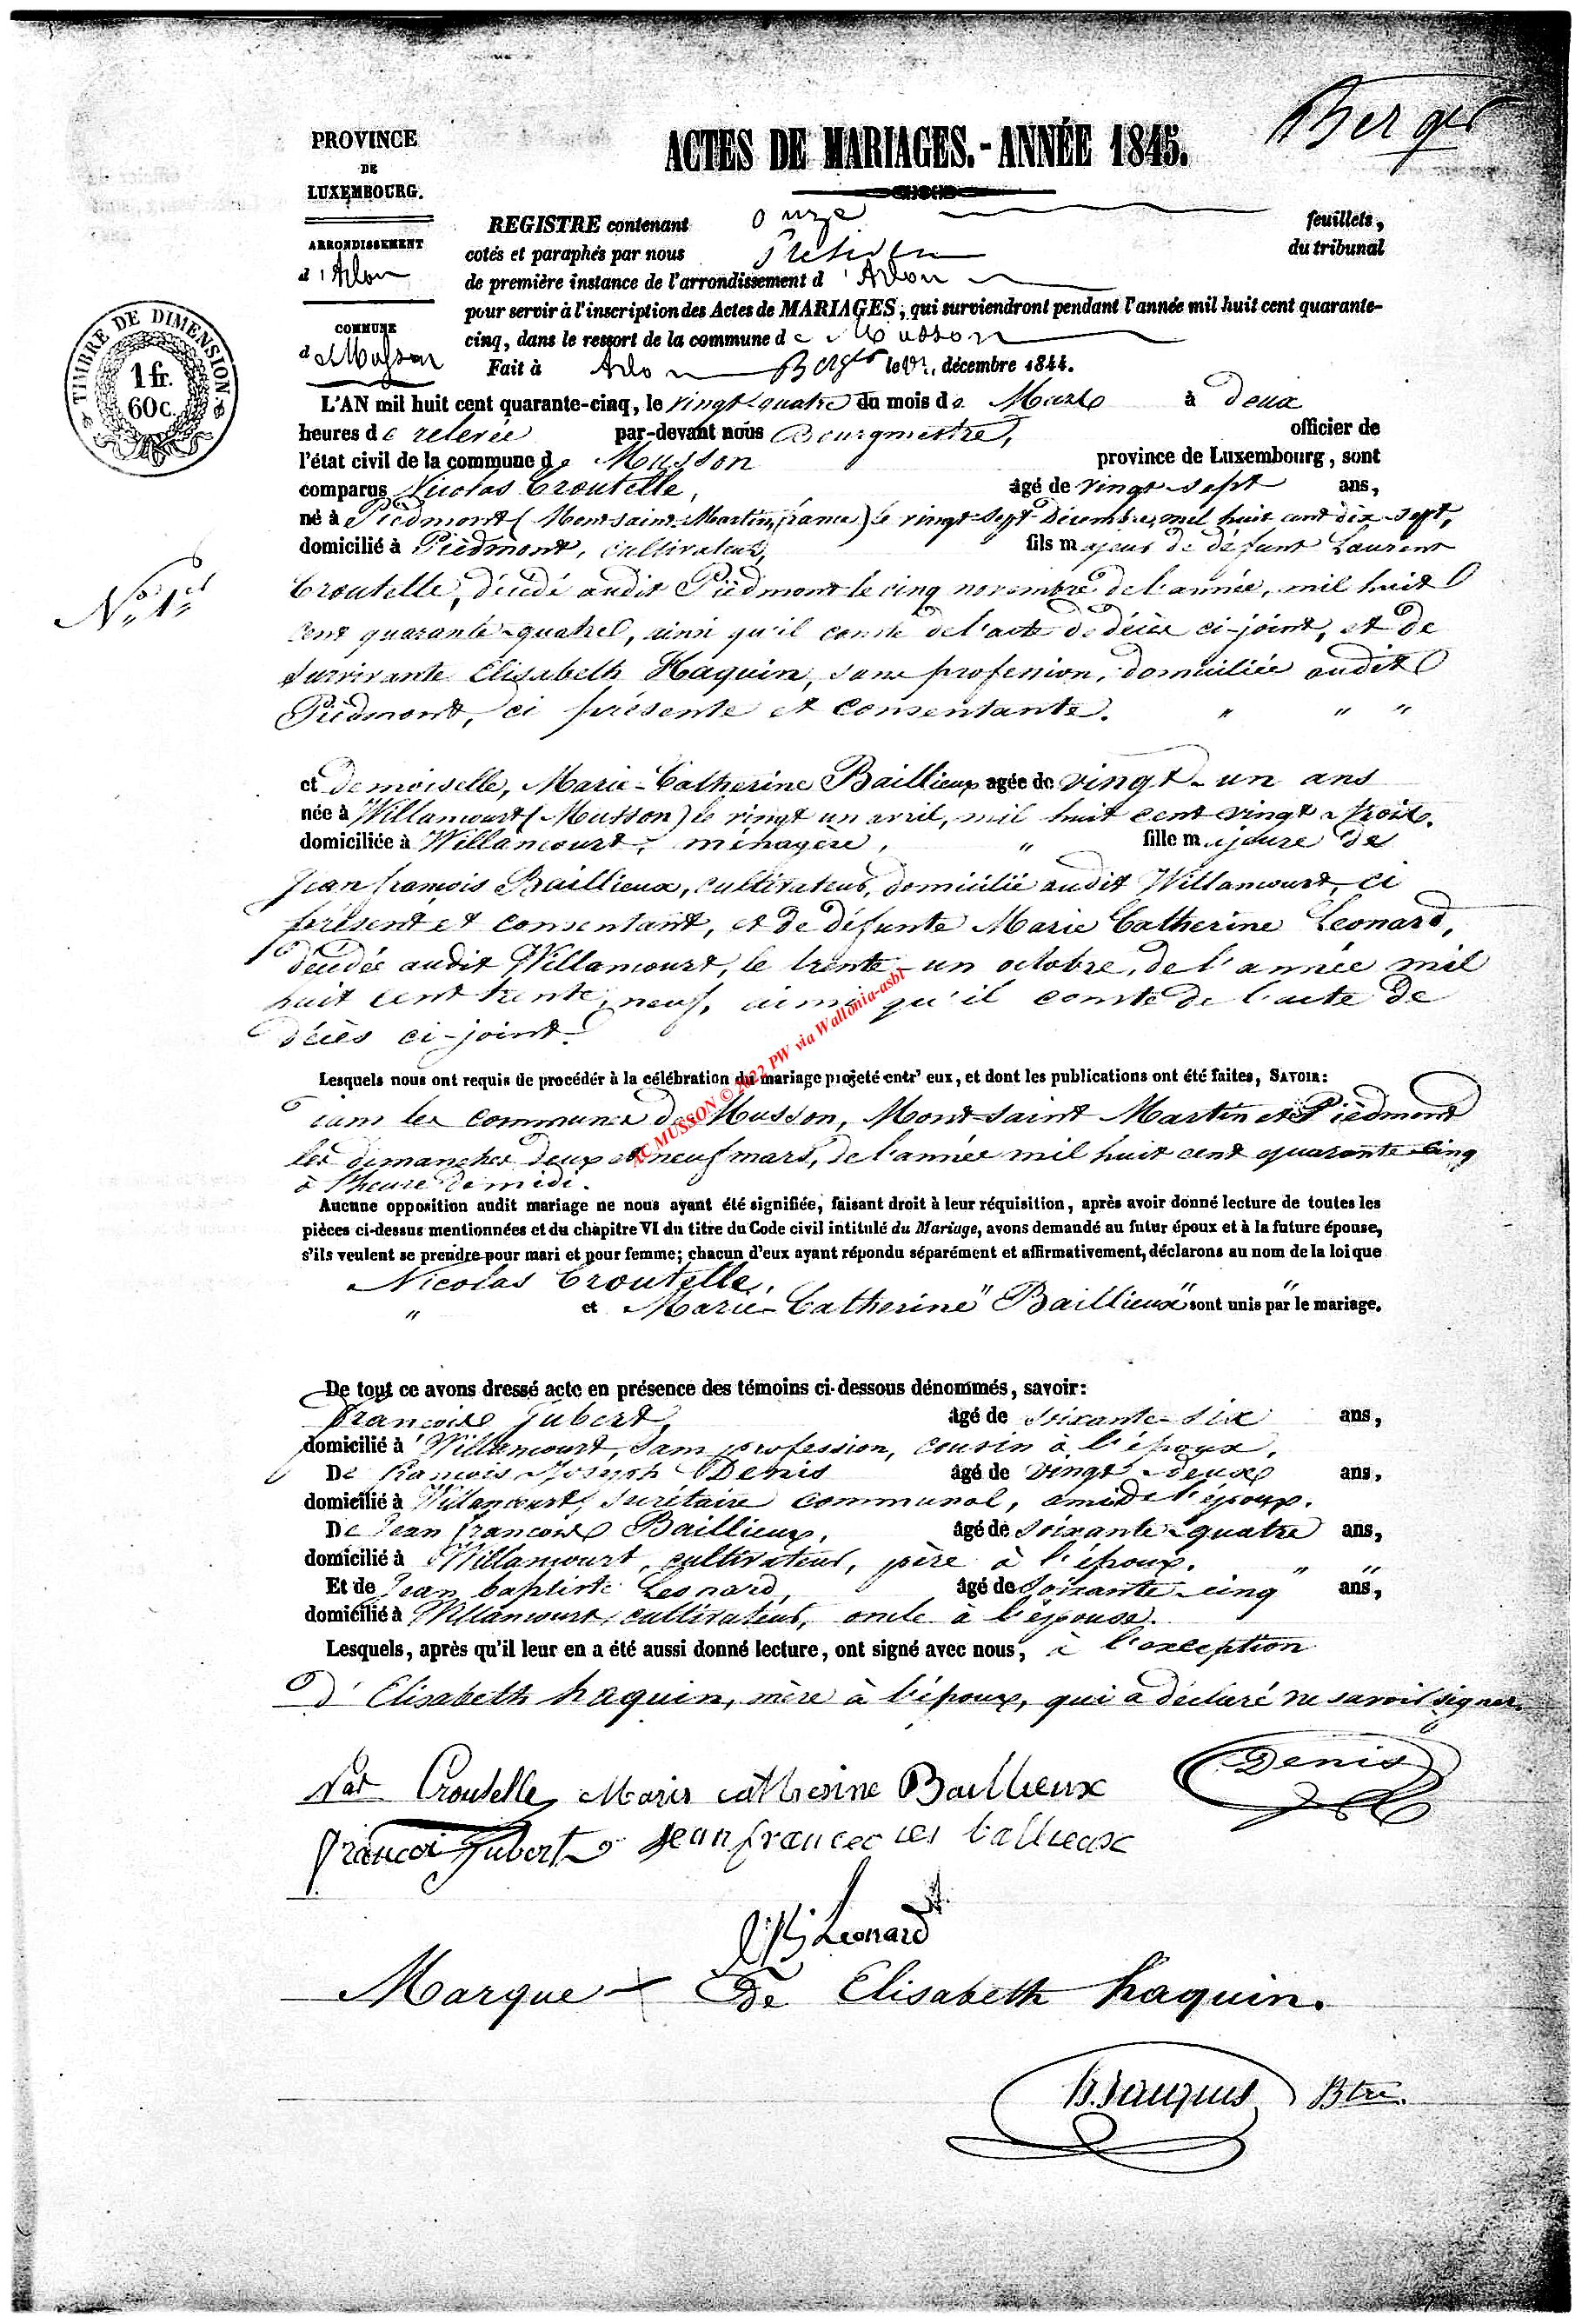 Berger
PROVINCE
DE
LUXEMBOURG.
ARRONDISSEMENT
d'Arlon
COMMUNE
de Musson
TIMBRE DE DIMENSION.
1 fr.
60 c.
ACTES DE MARIAGES.-ANNÉE 1845.
REGISTRE contenant onze feuillets,
cotés et paraphés par nous Président du tribunal
de première instance de l'arrondissement d'Arlon
pour servir à l'inscription des Actes de MARIAGES, qui surviendront pendant l'année mil huit cent quarante-
cinq, dans le ressort de la commune de Musson
Fait à Arlon Berger le décembre 1844.
L'AN mil huit cent quarante-cinq, le vingt-quatre du mois de Mars à deux
heures de relevée par-devant nous Bourgmestre, officier de
l'état civil de la commune de Musson province de Luxembourg, sont
comparus Nicolas Croutelle, âgé de vingt-sept ans,
né à Piedmont (Mont-saint-Martin, france) le vingt-sept Décembre, mil huit cent dix-sept,
domicilié à Piedmont, cultivateur, fils majeur de défunt Laurent
N° 1er
Croutelle, décédé audit Piedmont le cinq novembre de l'année, mil huit
cent quarante-quatre, ainsi qu'il conste de l'acte de décès ci-joint, et de
survivante Elisabeth Haquin, sans profession, domiciliée audit
Piedmont, ci présente et consentante. " " "
et demoiselle, Marie-Catherine Baillieux agée de vingt-un ans
née à Willancourt (Musson) le vingt un avril, mil huit cent vingt-trois.
domiciliée à Willancourt, ménagère, " fille majeure de
Jean françois Baillieux, cultivateur, domicilié audit Willancourt, ci
présent et consentant, et de défunte Marie Catherine Leonard,
décédée audit Willancourt, le trente-un octobre, de l'année mil
huit cent trente-neuf, ainsi qu'il conste de l'acte de
décès ci-joint.
AC MUSSON © 2022 PW via Wallonia-asbl
Lesquels nous ont requis de procéder à la célébration du mariage projeté entr' eux, et dont les publications ont été faites, SAVOIR:
dans les communes de Musson, Mont-saint Martin et Piedmont
les dimanches deux et neuf mars, de l'année mil huit cent quarante-cinq
à l'heure de midi.
Aucune opposition audit mariage ne nous ayant été signifiée, faisant droit à leur réquisition, après avoir donné lecture de toutes les
pièces ci-dessus mentionnées et du chapitre VI du titre du Code civil intitulé du Mariage, avons demandé au futur époux et à la future épouse,
s'ils veulent se prendre pour mari et pour femme; chacun d'eux ayant répondu séparément et affirmativement, déclarons au nom de la loi que
Nicolas Croutelle,
" et Marie-Catherine " Baillieux " sont unis par " le mariage.
De tout ce avons dressé acte en présence des témoins ci-dessous dénommés, savoir:
François Jubert, âgé de soixante-six ans,
domicilié à Willancourt, sans profession, cousin à l'époux,
De françois Joseph Denis âgé de vingt-deux ans,
domicilié à Willancourt, secrétaire communal, ami de l'époux.
De Jean françois Baillieux, âgé de soixante-quatre ans,
domicilié à Willancourt, cultivateur, père à l'époux. " "
Et de Jean baptiste Leonard, âgé de soixante-cinq ans,
domicilié à Willancourt, cultivateur, oncle à l'épouse.
Lesquels, après qu'il leur en a été aussi donné lecture, ont signé avec nous, à l'exception
d'Elisabeth haquin, mère à l'époux, qui a déclaré ne savoir signer.
Nas Croutelle Marie catherine Baillieux Denis
francoi Jubert Jean francec ces ballieux
J.B. Leonard
Marque + De Elisabeth haquin.
Btre.